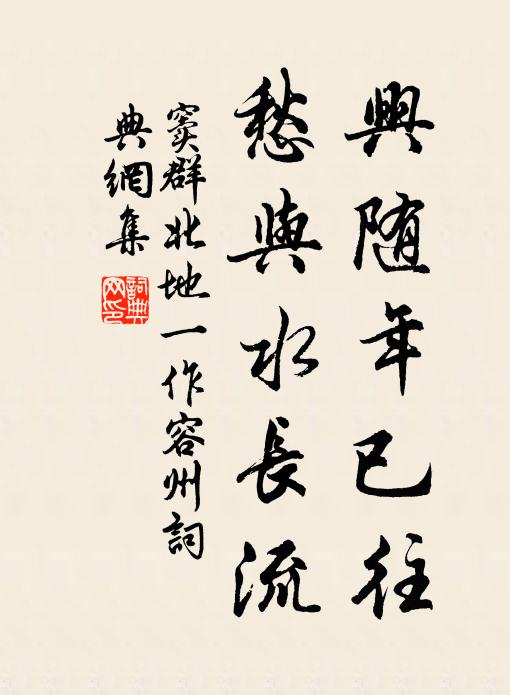 興随年已往
愁與水長流
竇群北地一作容州詞
典網集
詞典
网印